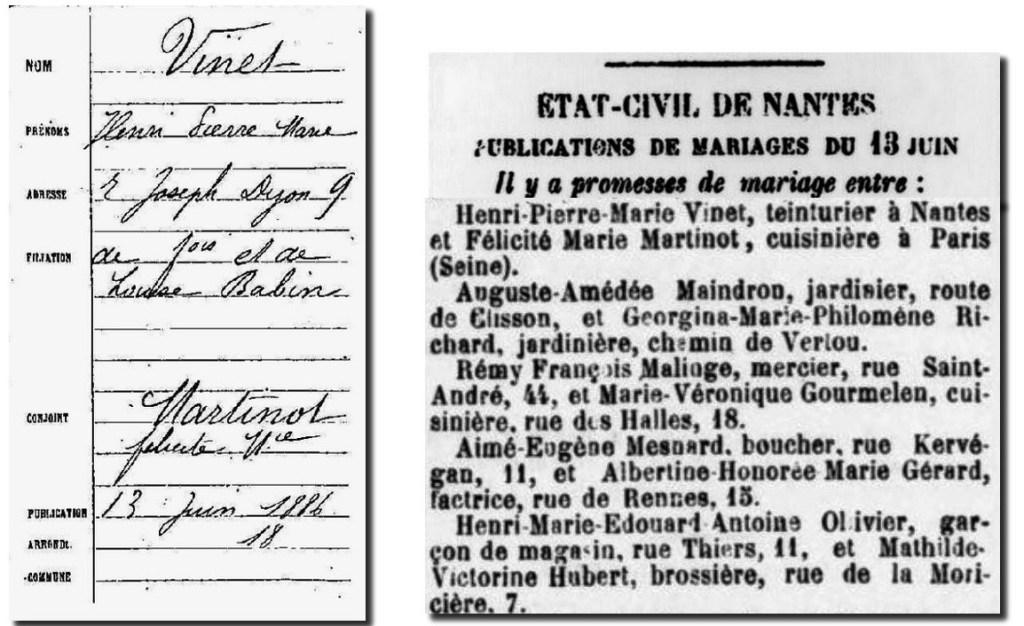 NOM Vinet
PRÉNOMS Henri Pierre Marie
ADRESSE r Joseph Dijon 9
FILIATION de fois et de
Louise Babin
CONJOINT Martinot
félicité Mie
PUBLICATION 13 Juin 1886
ARRONDt. 18
COMMUNE
ETAT-CIVIL DE NANTES
PUBLICATIONS DE MARIAGES DU 13 JUIN
Il y a promesses de mariage entre :
Henri-Pierre-Marie Vinet, teinturier à Nantes
et Félicité Marie Martinot, cuisinière à Paris
(Seine).
Auguste-Amédée Maindron, jardinier, route
de Clisson, et Georgina-Marie-Philomène Ri-
chard, jardinière, chemin de Vertou.
Rémy François Malinge, mercier, rue Saint-
André, 44, et Marie-Véronique Gourmelen, cui-
sinière, rue des Halles, 18.
Aimé-Eugène Mesnard, boucher, rue Kervé-
gan, 11, et Albertine-Honorée-Marie Gérard,
factrice, rue de Rennes, 15.
Henri-Marie-Edouard Antoine Ollivier, gar-
çon de magasin, rue Thiers, 11, et Mathilde-
Victorine Hubert, brossière, rue de la Mori-
cière, 7.